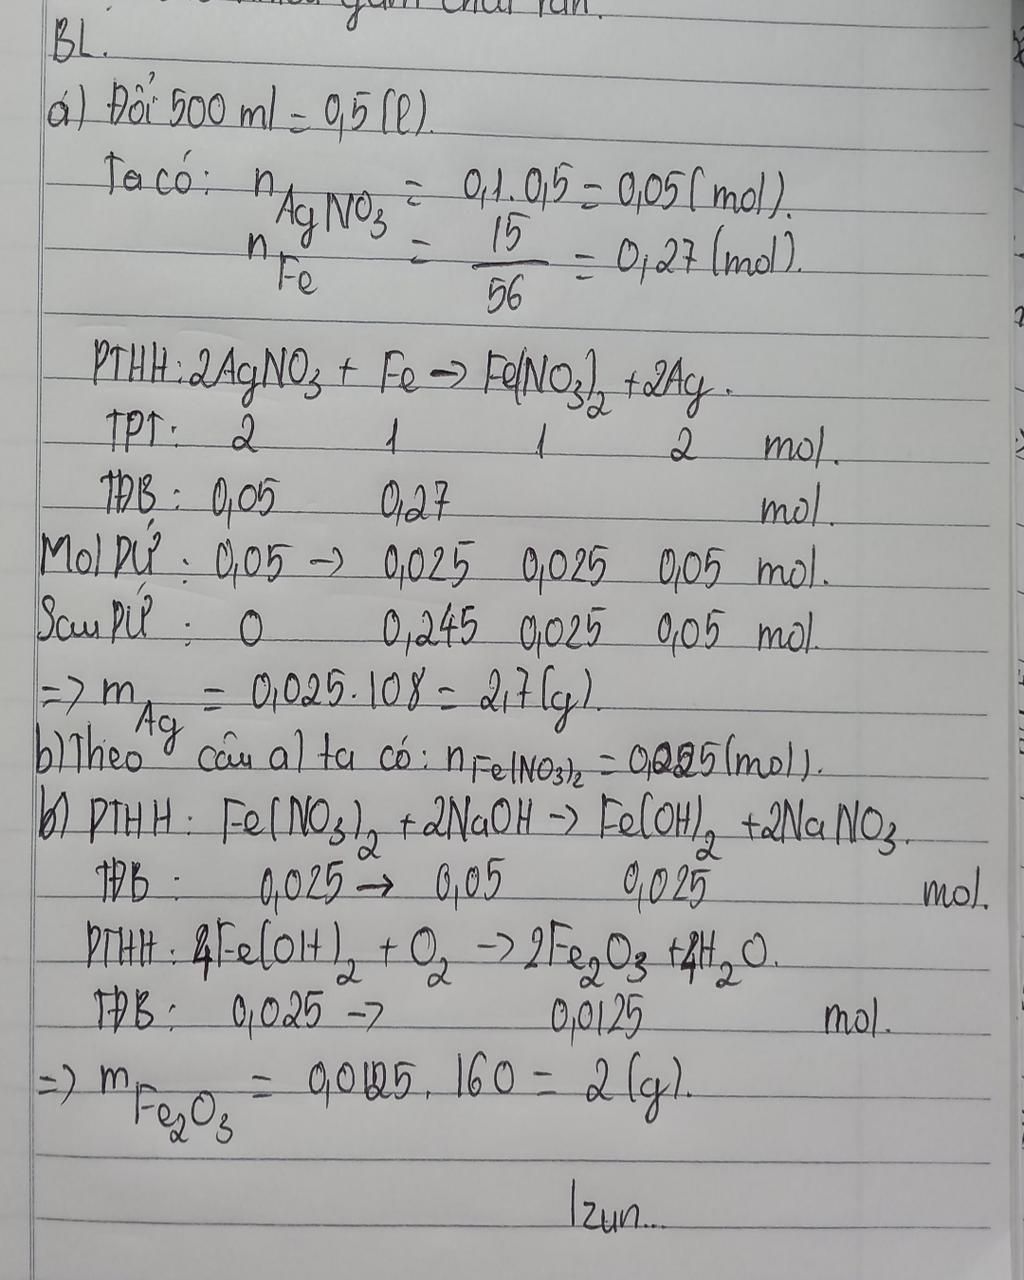 gam chất rắn.
BL.
a) Đổi 500 ml = 0,5 (l).
Ta có: n AgNO3 = 0,1 . 0,5 = 0,05 (mol).
n Fe = 15/56 = 0,27 (mol).
PTHH: 2AgNO3 + Fe -> Fe(NO3)2 + 2Ag.
TPT: 2 1 1 2 mol.
TĐB: 0,05 0,27 mol.
Mol PỨ: 0,05 -> 0,025 0,025 0,05 mol.
Sau PỨ: 0 0,245 0,025 0,05 mol.
=> m Ag = 0,025 . 108 = 2,7 (g).
b) Theo câu a) ta có: n Fe(NO3)2 = 0,025 (mol).
b) PTHH: Fe(NO3)2 + 2NaOH -> Fe(OH)2 + 2NaNO3.
TĐB: 0,025 -> 0,05 0,025 mol.
PTHH: 4Fe(OH)2 + O2 -> 2Fe2O3 + 4H2O.
TĐB: 0,025 -> 0,0125 mol.
=> m Fe2O3 = 0,0125 . 160 = 2 (g).
Izun...